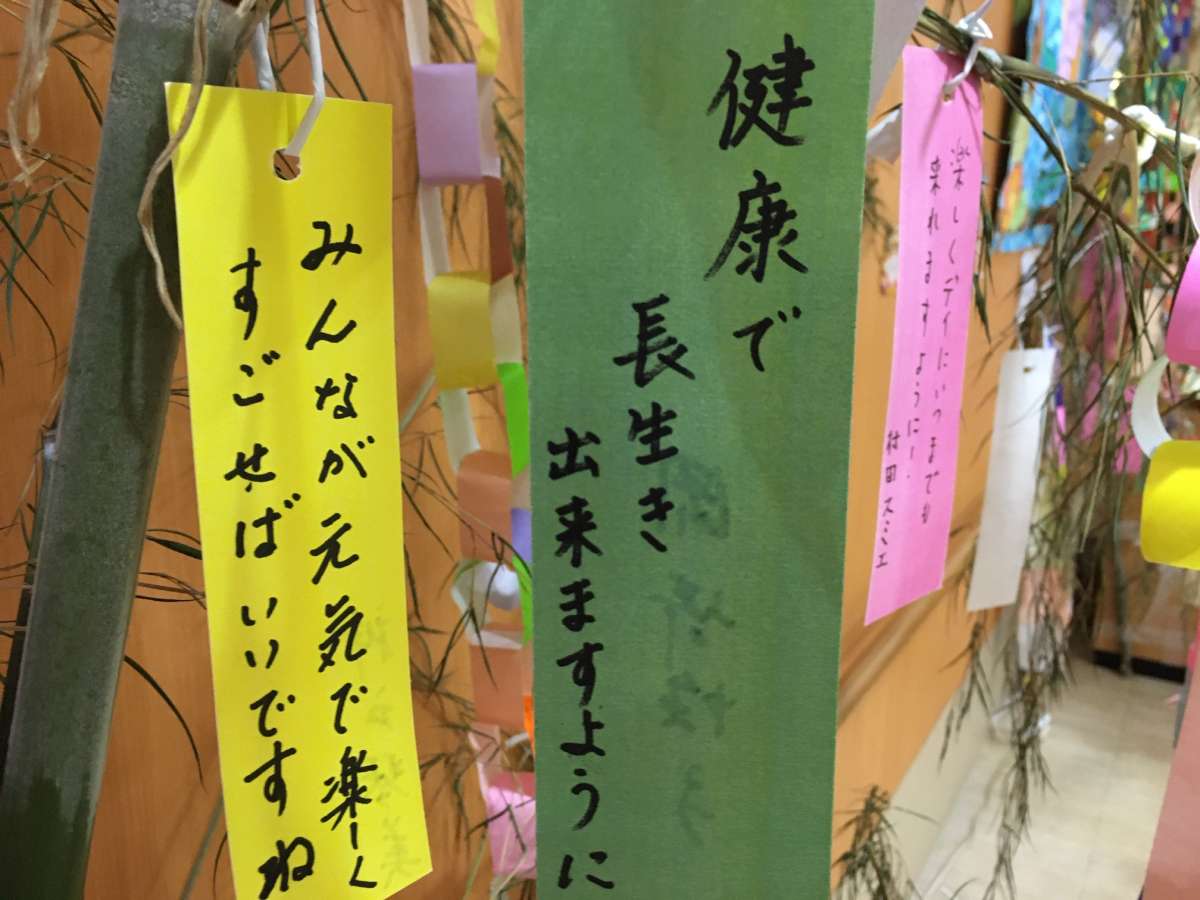 みんなが元気で楽しく
すごせばいいですね
健康で
長生き
出来ますように
楽しくデイにいつまでも
来れますように!
村田スミエ